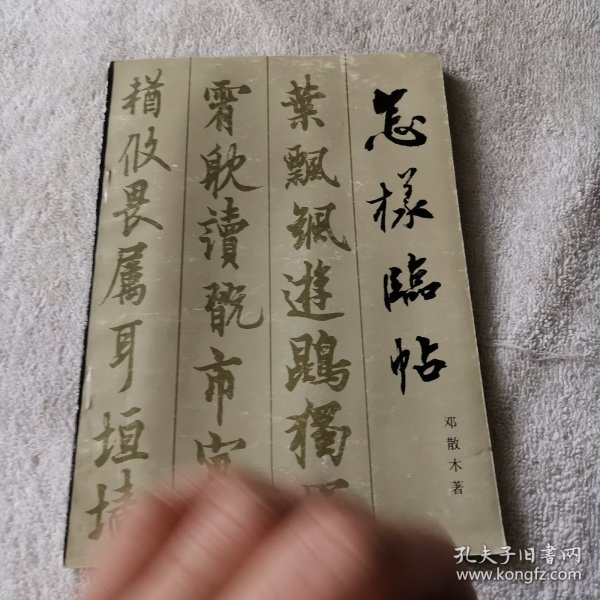 怎樣臨帖
邓散木著
葉飄颻遊鵾獨
霄耽讀翫市寓
輶攸畏屬耳垣墻
孔夫子旧书网
www.kongfz.com